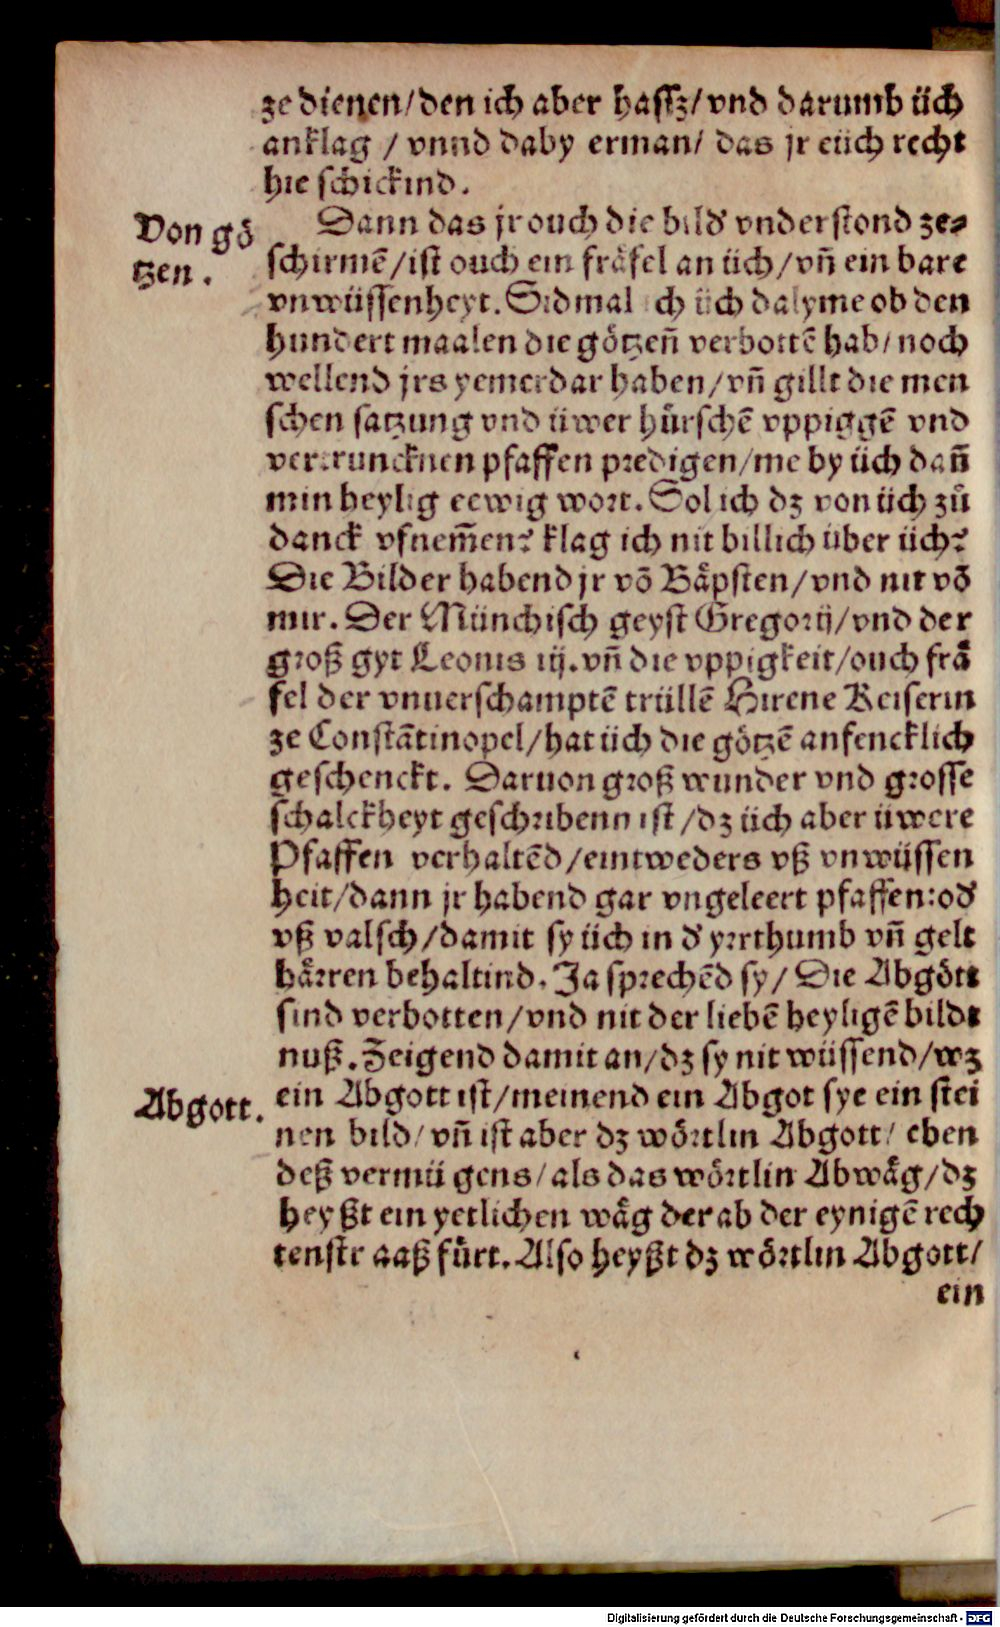 ze dienen/den ich aber hassz/vnd darumb üch
anklag / vnnd daby erman/ das jr eüch recht
hie schickind.
Von gö
tzen.
Dann das jr ouch die bild vnderstond ze-
schirmē/ist ouch ein fräfel an üch/vñ ein bare
vnwüssenheyt. Sidmal ich üch dalyme ob den
hundert maalen die götzeñ verbottē hab/noch
wellend jrs yemerdar haben/vñ gillt die men
schen satzung vnd üwer hůrschē vppiggē vnd
vertruncknen pfaffen predigen/me by üch dañ
min heylig eewig wort. Sol ich dz von üch zů
danck vfnem̃en? klag ich nit billich über üch?
Die Bilder habend jr vō Bäpsten/vnd nit vō
mir. Der Münchisch geyst Gregorij/vnd der
groß gyt Leonis iij. vñ die vppigkeit/ouch frä
fel der vnuerschamptē trüllē Hirene Keiserin
ze Constātinopel/hat üch die götzē anfencklich
geschenckt. Daruon groß wunder vnd grosse
schalckheyt geschribenn ist/dz üch aber üwere
Pfaffen verhaltēd/eintweders vß vnwüssen
heit/dann jr habend gar vngeleert pfaffen:od'
vß valsch/damit sy üch in d' yrrthumb vñ gelt
härren behaltind. Ja sprechēd sy/ Die Abgött
sind verbotten/vnd nit der liebē heyligē bildt
nuß. Zeigend damit an/dz sy nit wüssend/wz
Abgott.
ein Abgott ist/meinend ein Abgot sye ein stei
nen bild/vñ ist aber dz wörtlin Abgott/ eben
deß vermü gens/als das wörtlin Abwäg/dz
heyßt ein yetlichen wäg der ab der eynigē rech
tenstr aaß fürt. Also heyßt dz wörtlin Abgott/
ein
Digitalisierung gefördert durch die Deutsche Forschungsgemeinschaft - DFG